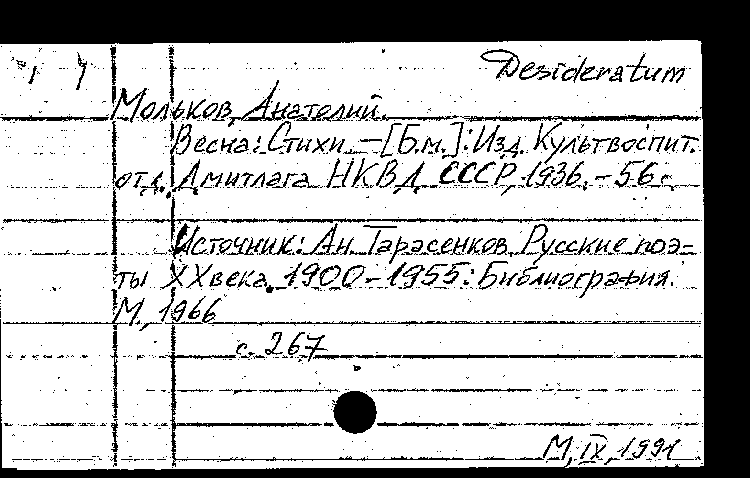 Desideratum
Мольков, Анатолий.
Весна: Стихи. – [Б.м.]: Изд. Культвоспит.
отд. Дмитлага НКВД СССР, 1936. – 56 с.
Источник: Ан. Тарасенков. Русские поэ-
ты XX века. 1900–1955: Библиография.
М., 1966
с. 267
М, IX, 1991